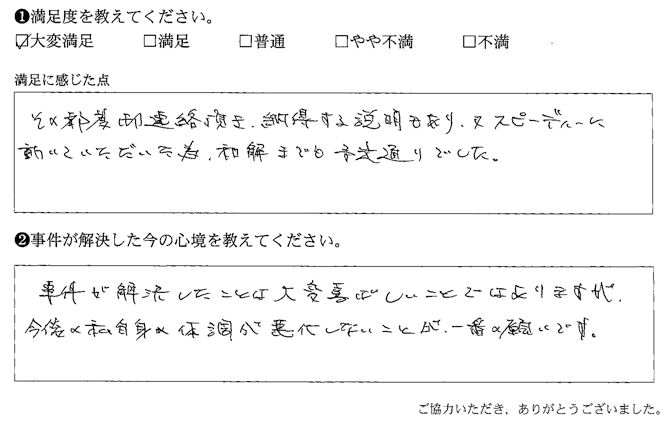 ❶満足度を教えてください。
☑大変満足 □満足 □普通 □やや不満 □不満
満足に感じた点
その都度即連絡頂き、納得する説明もあり、又スピーディーに
動いていただいた為、和解までも予定通りでした。
❷事件が解決した今の心境を教えてください。
事件が解決したことは大変喜ばしいことではありますが、
今後の私自身の体調が悪化しないことが、一番の願いです。
ご協力いただき、ありがとうございました。